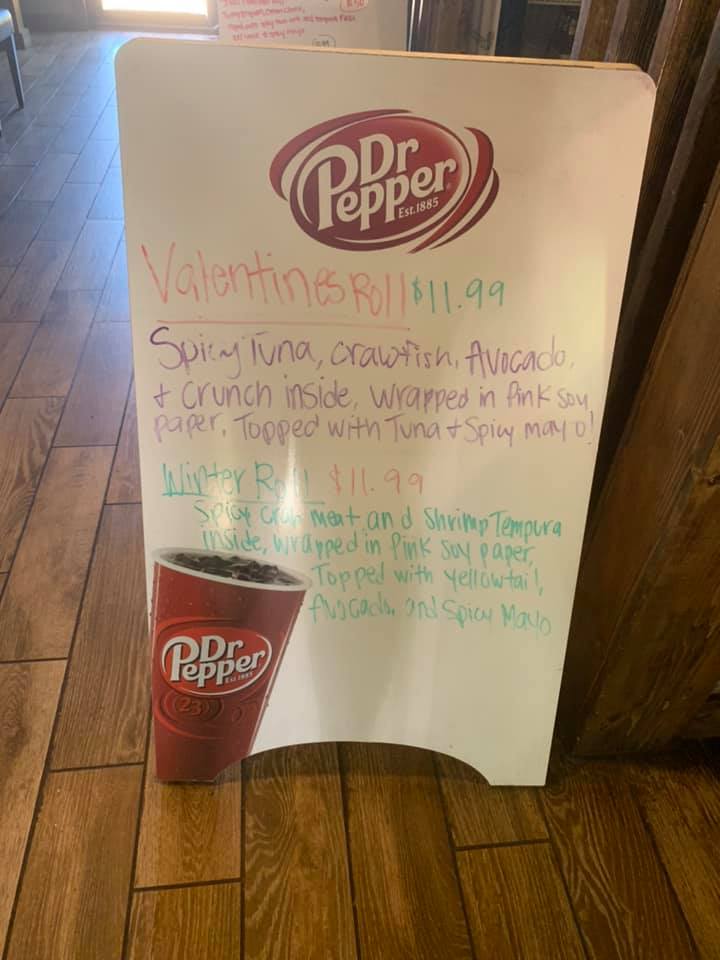 Dr
Pepper
Est.1885
Valentines Roll $11.99
Spicy Tuna, crawfish, Avocado,
+ Crunch inside, wrapped in Pink soy
paper, Topped with Tuna + Spicy mayo!
Winter Roll $11.99
Spicy crab meat and Shrimp Tempura
inside, wrapped in Pink Soy paper,
Topped with yellowtail,
Avocado, and Spicy Mayo
Dr
Pepper
Est.1885
23